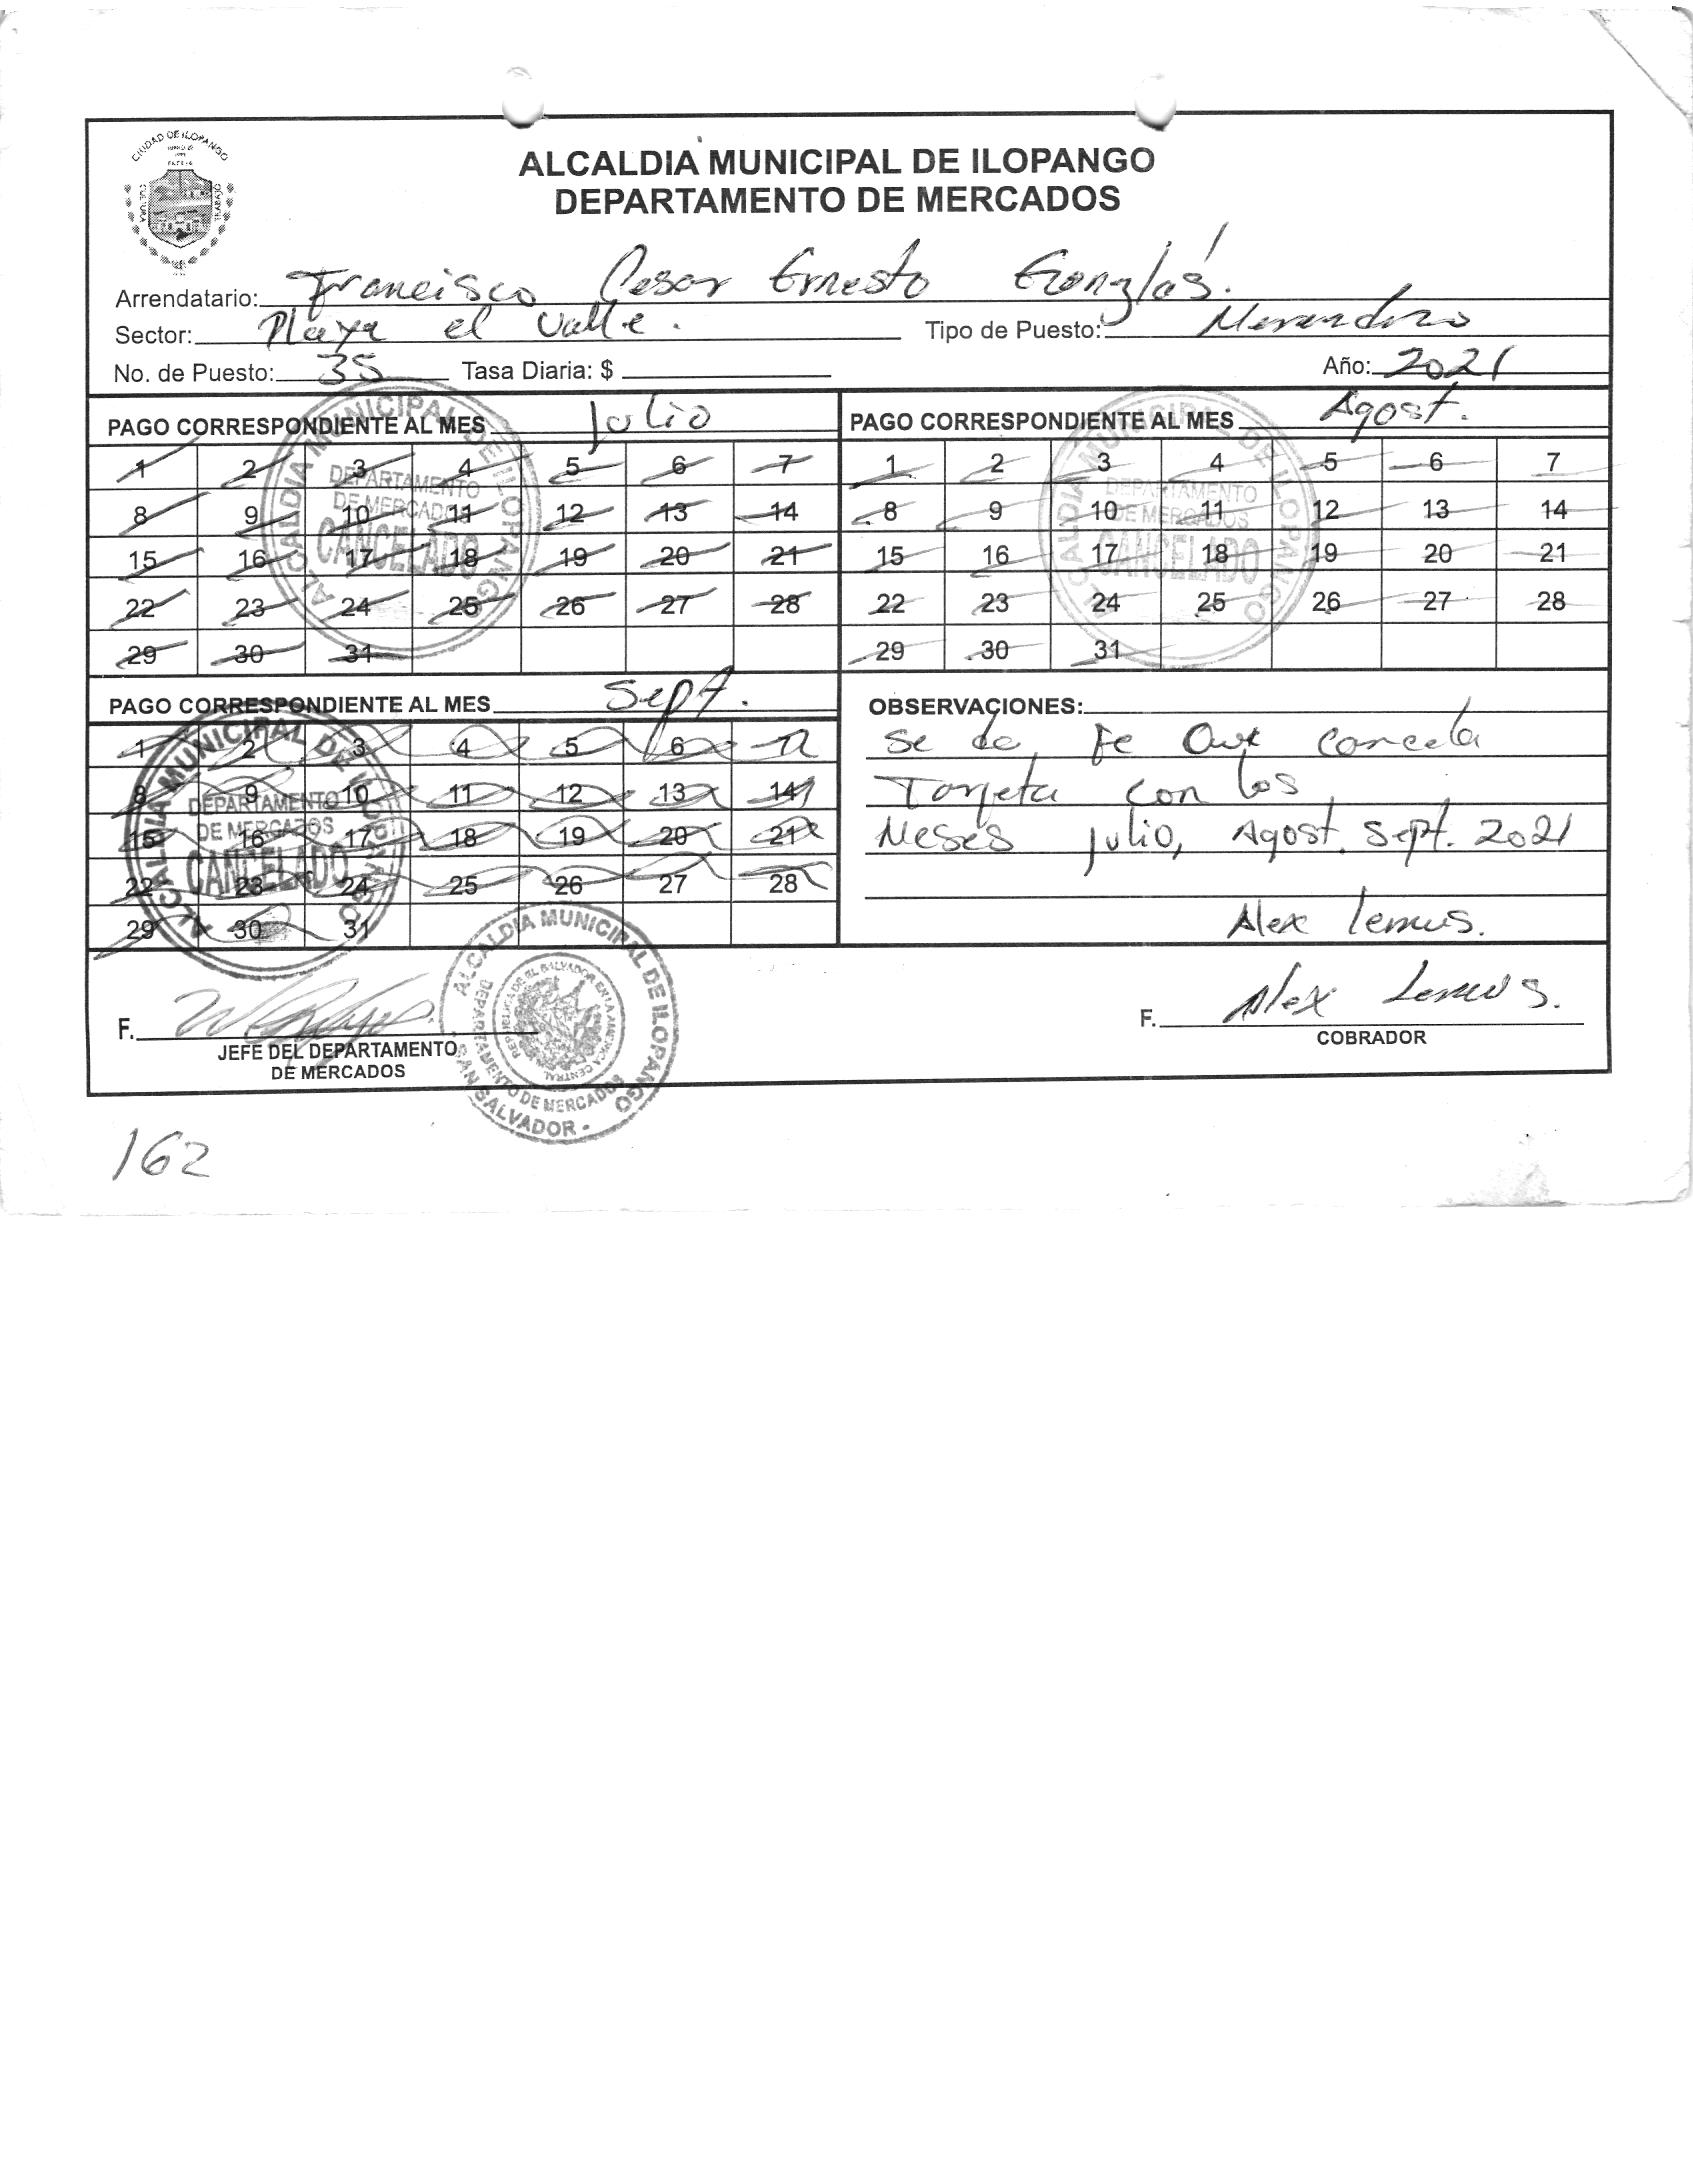 CIUDAD DE ILOPANGO
CULTURA
TRABAJO
ALCALDIA MUNICIPAL DE ILOPANGO
DEPARTAMENTO DE MERCADOS
Arrendatario: Francisco Cesar Ernesto
Sector: Playa el Valle.
Tipo de Puesto:
No. de Puesto: 35 Tasa Diaria: $
Año: 2021
PAGO CORRESPONDIENTE AL MES Julio
1 2 3 4 5 6 7
8 9 10 11 12 13 14
15 16 17 18 19 20 21
22 23 24 25 26 27 28
29 30 31
ALCALDIA MUNICIPAL DE ILOPANGO
DEPARTAMENTO
DE MERCADOS
CANCELADO
PAGO CORRESPONDIENTE AL MES Agost.
1 2 3 4 5 6 7
8 9 10 11 12 13 14
15 16 17 18 19 20 21
22 23 24 25 26 27 28
29 30 31
ALCALDIA MUNICIPAL DE ILOPANGO
DEPARTAMENTO
DE MERCADOS
CANCELADO
PAGO CORRESPONDIENTE AL MES Sept.
1 2 3 4 5 6
8 9 10 11 12 13 14
15 16 17 18 19 20 21
22 23 24 25 26 27 28
29 30 31
ALCALDIA MUNICIPAL DE ILOPANGO
DEPARTAMENTO
DE MERCADOS
CANCELADO
OBSERVACIONES:
se da Fe Que cancela
Tarjeta con los
Meses julio, Agost. Sept. 2021
Alex Lemus.
F.
JEFE DEL DEPARTAMENTO
DE MERCADOS
ALCALDIA MUNICIPAL DE ILOPANGO
DEPARTAMENTO DE MERCADOS
SAN SALVADOR
REPUBLICA DE EL SALVADOR EN LA AMERICA CENTRAL
F. Alex Lemus.
COBRADOR
162